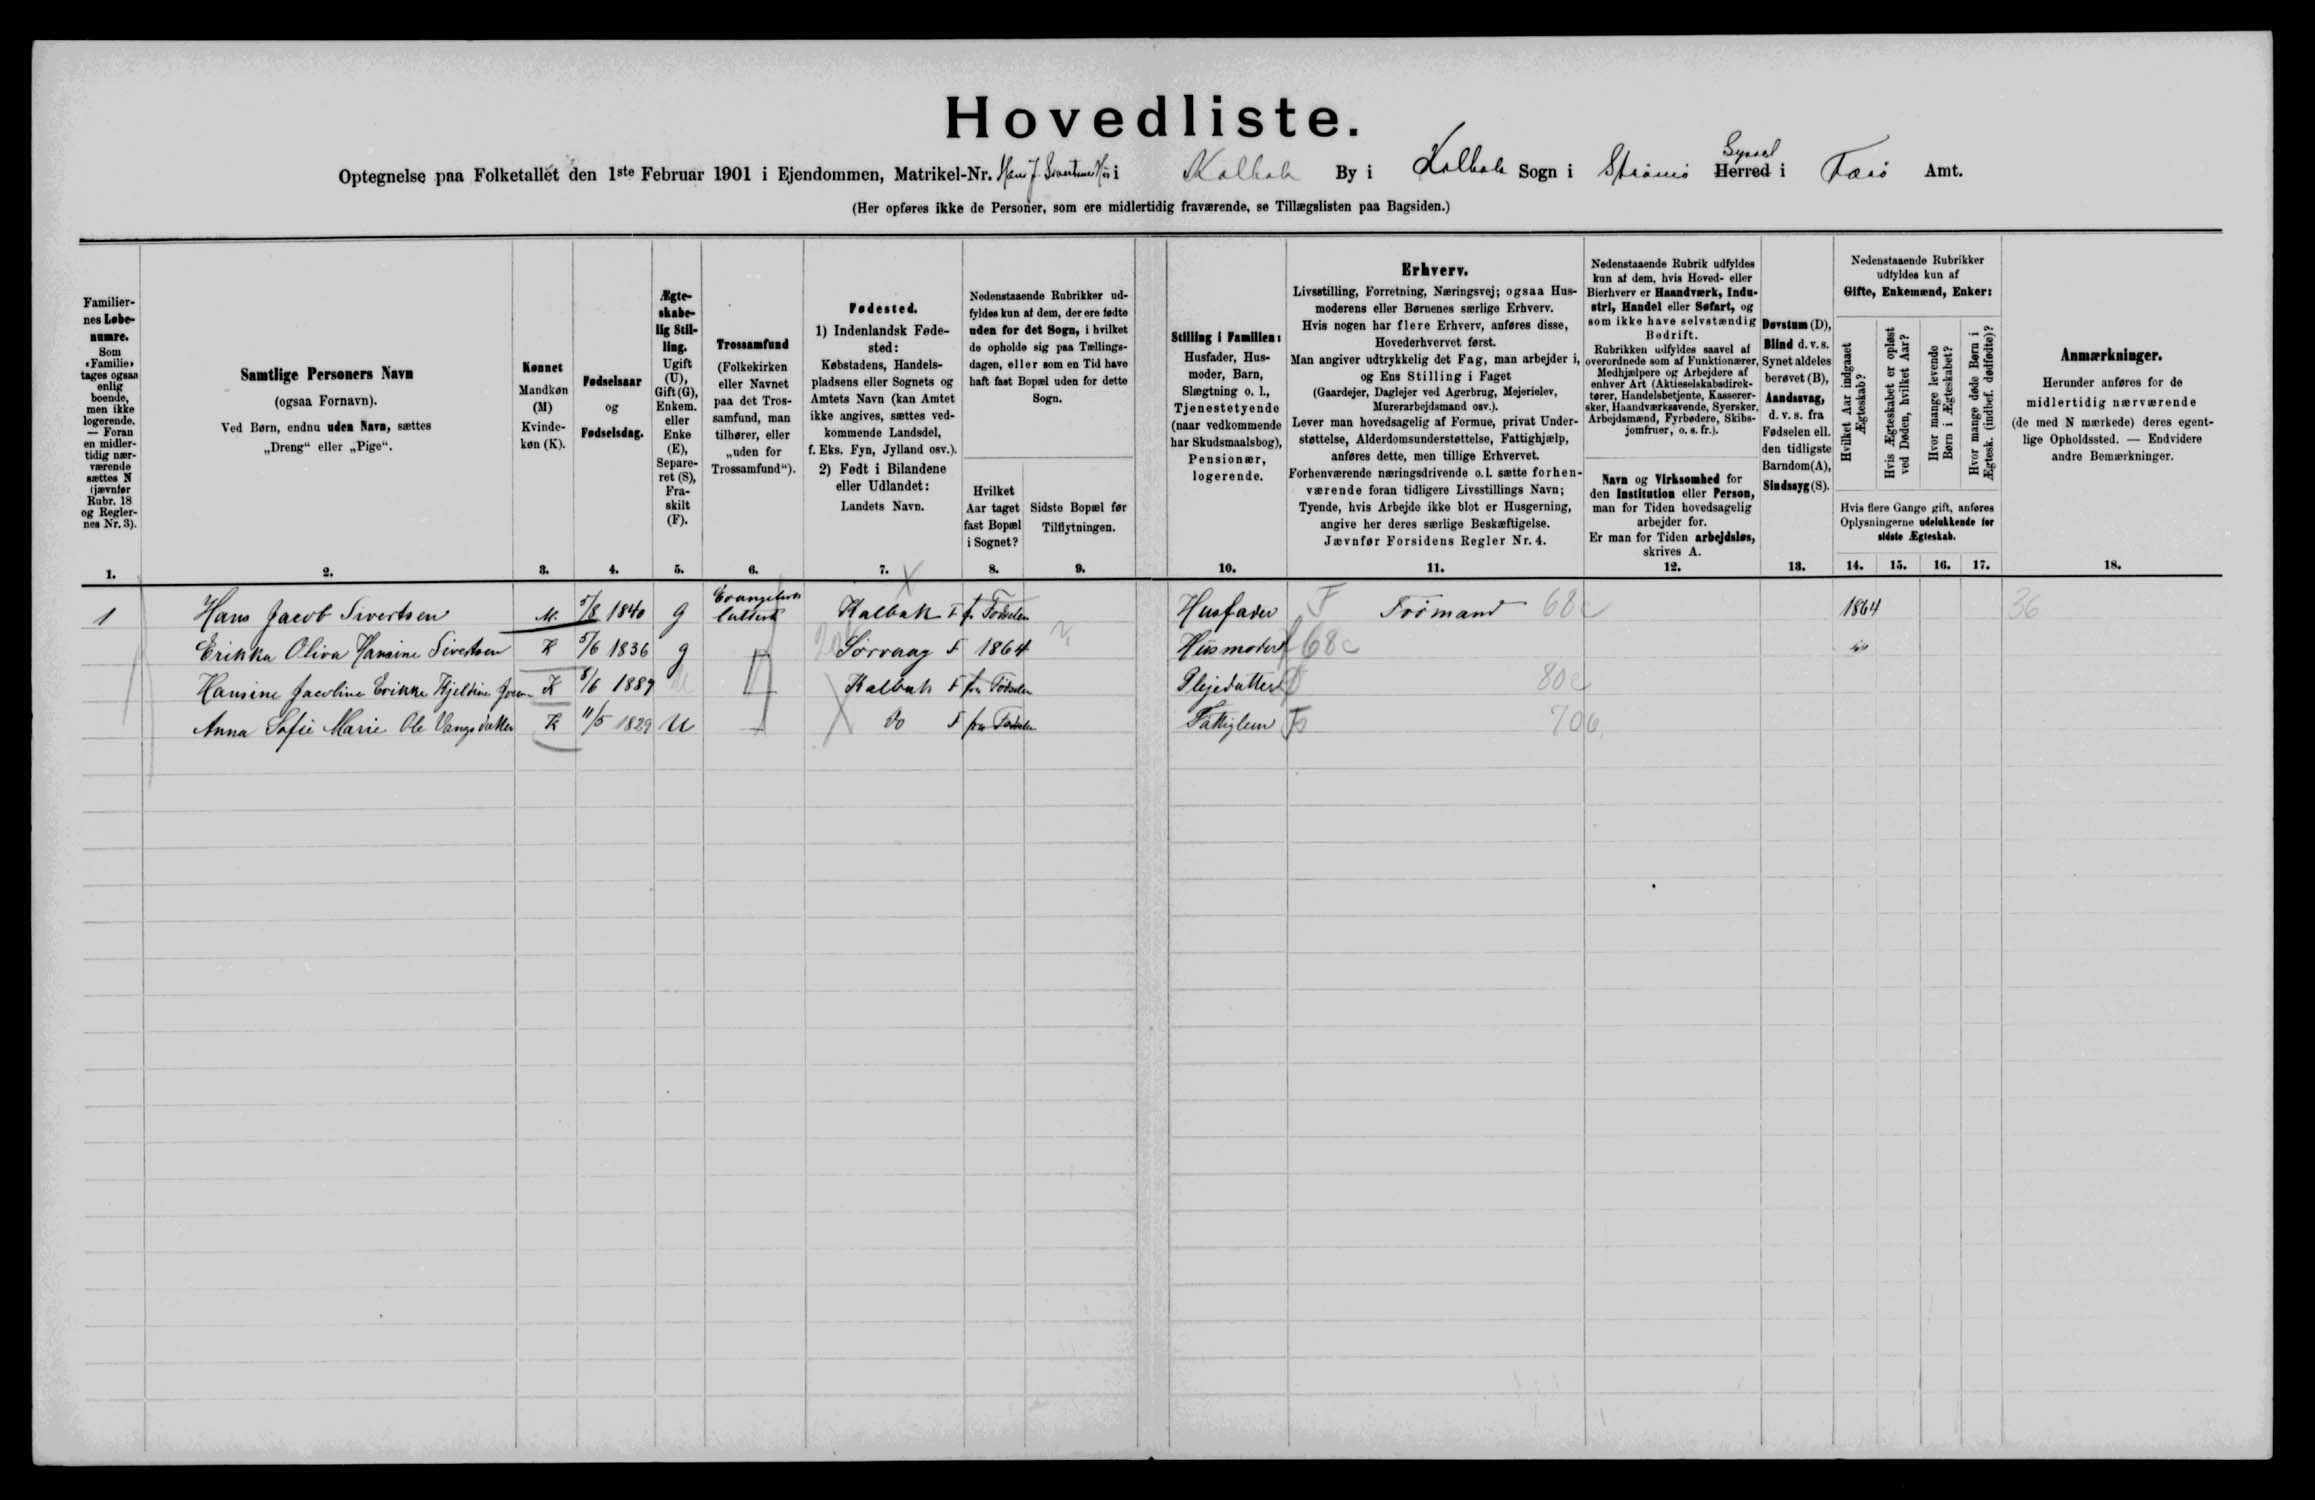 Hovedliste.
Optegnelse paa Folketallet den 1ste Februar 1901 i Ejendommen, Matrikel-Nr. Hans J. Sivertsens Hus i Kalbak By i Kalbak Sogn i Strømø Syssel Herred i Færø Amt.
(Her opføres ikke de Personer, som ere midlertidig fraværende, se Tillægslisten paa Bagsiden.)
Familier-
nes Løbe-
numre.
Som
«Familie»
tages ogsaa
enlig
boende,
men ikke
logerende.
— Foran
en midler-
tidig nær-
værende
sættes N
(jævnfør
Rubr. 18
og Regler-
nes Nr. 3).
1.
Samtlige Personers Navn
(ogsaa Fornavn).
Ved Børn, endnu uden Navn, sættes
„Dreng“ eller „Pige“.
2.
Kønnet
Mandkøn
(M)
Kvinde-
køn (K).
3.
Fødselsaar
og
Fødselsdag.
4.
Ægte-
skabe-
lig Stil-
ling.
Ugift
(U),
Gift (G),
Enkem.
eller
Enke
(E),
Separe-
ret (S),
Fra-
skilt
(F).
5.
Trossamfund
(Folkekirken
eller Navnet
paa det Tros-
samfund, man
tilhører, eller
„uden for
Trossamfund“).
6.
Fødested.
1) Indenlandsk Føde-
sted:
Købstadens, Handels-
pladsens eller Sognets og
Amtets Navn (kan Amtet
ikke angives, sættes ved-
kommende Landsdel,
f. Eks. Fyn, Jylland osv.).
2) Født i Bilandene
eller Udlandet:
Landets Navn.
7.
Nedenstaaende Rubrikker ud-
fyldes kun af dem, der ere fødte
uden for det Sogn, i hvilket
de opholde sig paa Tællings-
dagen, eller som en Tid have
haft fast Bopæl uden for dette
Sogn.
Hvilket
Aar taget
fast Bopæl
i Sognet?
8.
Sidste Bopæl før
Tilflytningen.
9.
Stilling i Familien:
Husfader, Hus-
moder, Barn,
Slægtning o. l.,
Tjenestetyende
(naar vedkommende
har Skudsmaalsbog),
Pensionær,
logerende.
10.
Erhverv.
Livsstilling, Forretning, Næringsvej; ogsaa Hus-
moderens eller Børnenes særlige Erhverv.
Hvis nogen har flere Erhverv, anføres disse,
Hovederhvervet først.
Man angiver udtrykkelig det Fag, man arbejder i,
og Ens Stilling i Faget
(Gaardejer, Daglejer ved Agerbrug, Mejerielev,
Murerarbejdsmand osv.).
Lever man hovedsagelig af Formue, privat Under-
støttelse, Alderdomsunderstøttelse, Fattighjælp,
anføres dette, men tillige Erhvervet.
Forhenværende næringsdrivende o. l. sætte forhen-
værende foran tidligere Livsstillings Navn;
Tyende, hvis Arbejde ikke blot er Husgerning,
angive her deres særlige Beskæftigelse.
Jævnfør Forsidens Regler Nr. 4.
11.
Nedenstaaende Rubrik udfyldes
kun af dem, hvis Hoved- eller
Bierhverv er Haandværk, Indu-
stri, Handel eller Søfart, og
som ikke have selvstændig
Bedrift.
Rubrikken udfyldes saavel af
overordnede som af Funktionærer,
Medhjælpere og Arbejdere af
enhver Art (Aktieselskabsdirek-
tører, Handelsbetjente, Kasserer-
sker, Haandværkssvende, Syersker,
Arbejdsmænd, Fyrbødere, Skibs-
jomfruer, o. s. fr.).
Navn og Virksomhed for
den Institution eller Person,
man for Tiden hovedsagelig
arbejder for.
Er man for Tiden arbejdsløs,
skrives A.
12.
Døvstum (D),
Blind d. v. s.
Synet aldeles
berøvet (B),
Aandssvag,
d. v. s. fra
Fødselen ell.
den tidligste
Barndom (A),
Sindssyg (S).
13.
Nedenstaaende Rubrikker
udfyldes kun af
Gifte, Enkemænd, Enker:
Hvilket Aar indgaaet
Ægteskab?
Hvis Ægteskabet er opløst
ved Døden, hvilket Aar?
Hvor mange levende
Børn i Ægteskabet?
Hvor mange døde Børn i
Ægtesk. (indbef. dødfødte)?
Hvis flere Gange gift, anføres
Oplysningerne udelukkende for
sidste Ægteskab.
14. 15. 16. 17.
Anmærkninger.
Herunder anføres for de
midlertidig nærværende
(de med N mærkede) deres egent-
lige Opholdssted. — Endvidere
andre Bemærkninger.
18.
1 Hans Jacob Sivertsen M. 5/8 1840 g Evangelisk luthersk Kalbak F fr Fødselen Husfader F Frømand 68c 1864 36
Erikka Oliva Hansine Sivertsen K 5/6 1836 g Sørvaag F 1864 Husmoder 68c
Hansine Jacobine Erikke Kjeldine Joen- K 8/6 1889 U Kalbak F fra Fødselen Plejedatter 80c
Anna Sofie Marie Ole Vangsdatter K 11/5 1829 U Do F fra Fødselen Fattiglem 706